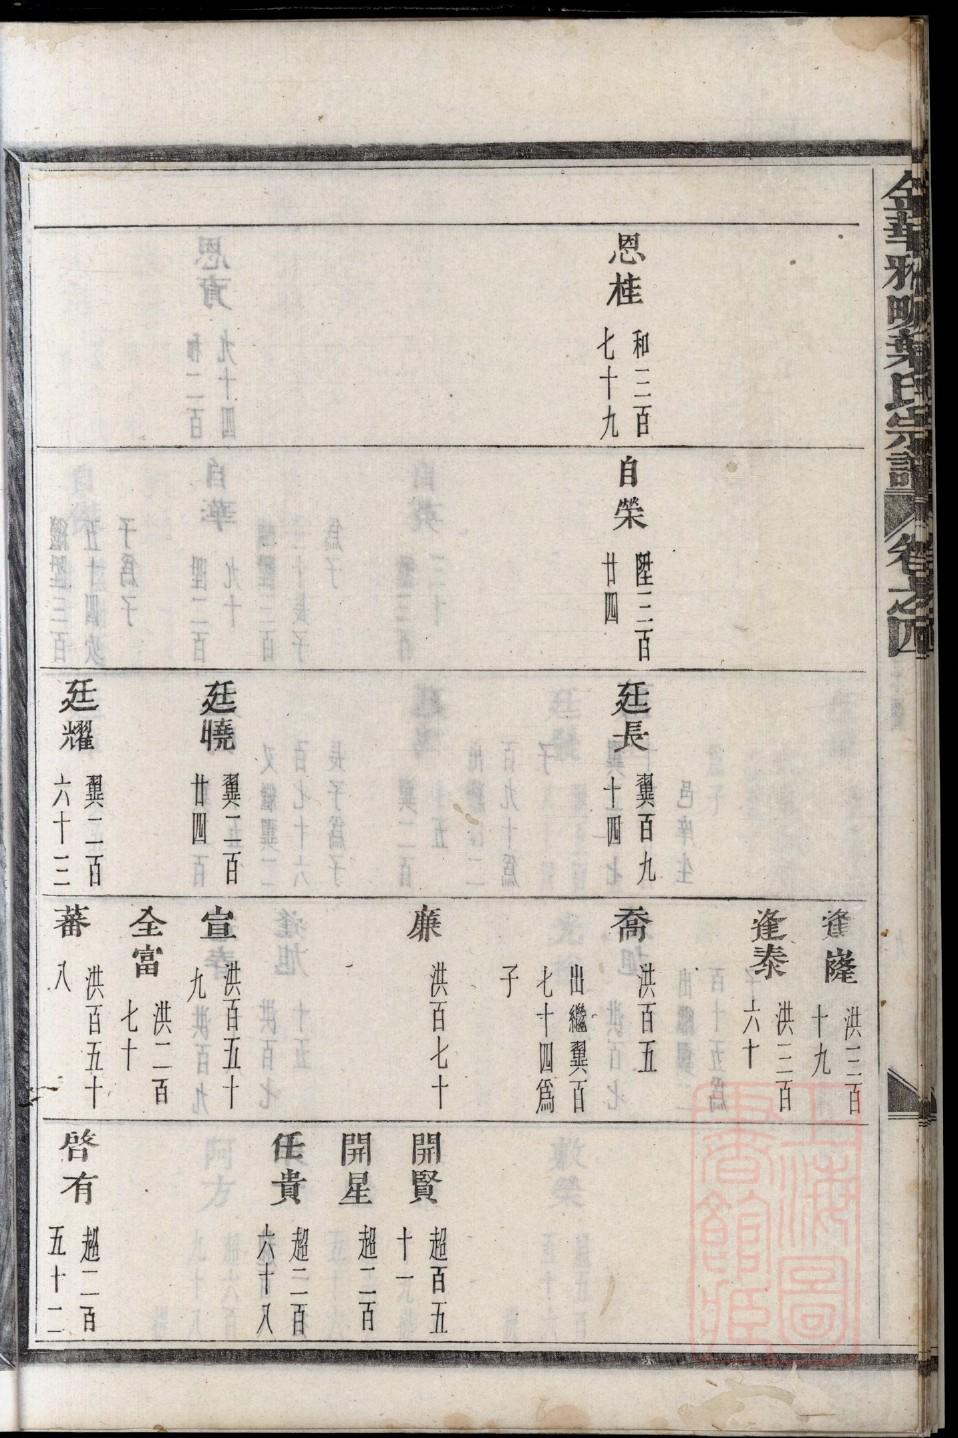 金華雅畈葉氏宗譜
卷之四
恩桂
和三百
七十九
自榮
陞三百
廿四
廷長
翼百九
十四
邑庠生
廷曉
翼二百
廿四
廷耀
翼二百
六十三
逢隆
洪三百
十九
逢泰
洪三百
六十
喬
洪百五
出繼翼百
七十四為
子
廉
洪百七十
宣
洪百五十
九
全富
洪二百
七十
蕃
洪百五十
八
開賢
超百五
十一
開星
超二百
任貴
超二百
六十八
啓有
超二百
五十二
上海圖
書館藏